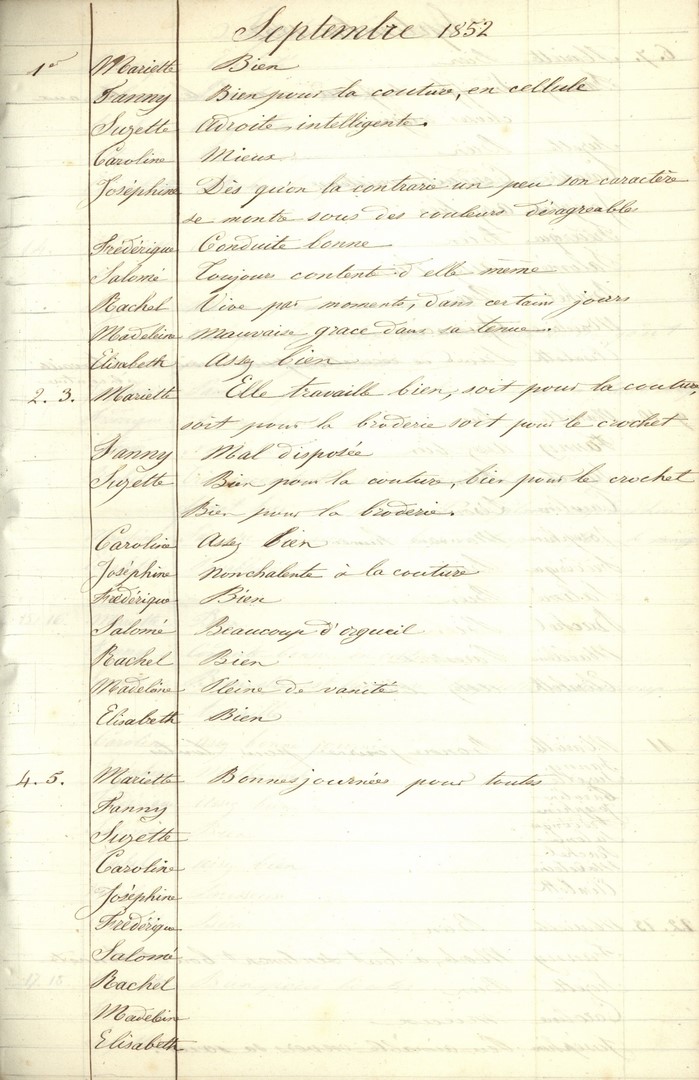 Septembre 1852
1er Mariette Bien
Fanny Bien pour la couture, en cellule
Suzette Adroite intelligente.
Caroline Mieux
Joséphine Dès qu'on la contrarie un peu son caractère
se montre sous des couleurs désagreables
Frédérique Conduite bonne
Salomé Toujours contente d'elle même
Rachel Vive par moments, dans certains jours
Madeleine mauvaise grace dans sa tenue.
Elisabeth Assez bien
2. 3. Mariette Elle travaille bien, soit pour la couture,
soit pour la broderie soit pour le crochet
Fanny Mal disposée
Suzette Bien pour la couture, bien pour le crochet
Bien pour la broderie.
Caroline Assez bien
Joséphine Nonchalente à la couture
Frédérique Bien
Salomé Beaucoup d'orgueil
Rachel Bien
Madeleine Pleine de vanité
Elisabeth Bien
4. 5. Mariette Bonnes journées pour toutes
Fanny
Suzette
Caroline
Joséphine
Frédérique
Salomé
Rachel
Madeleine
Elisabeth